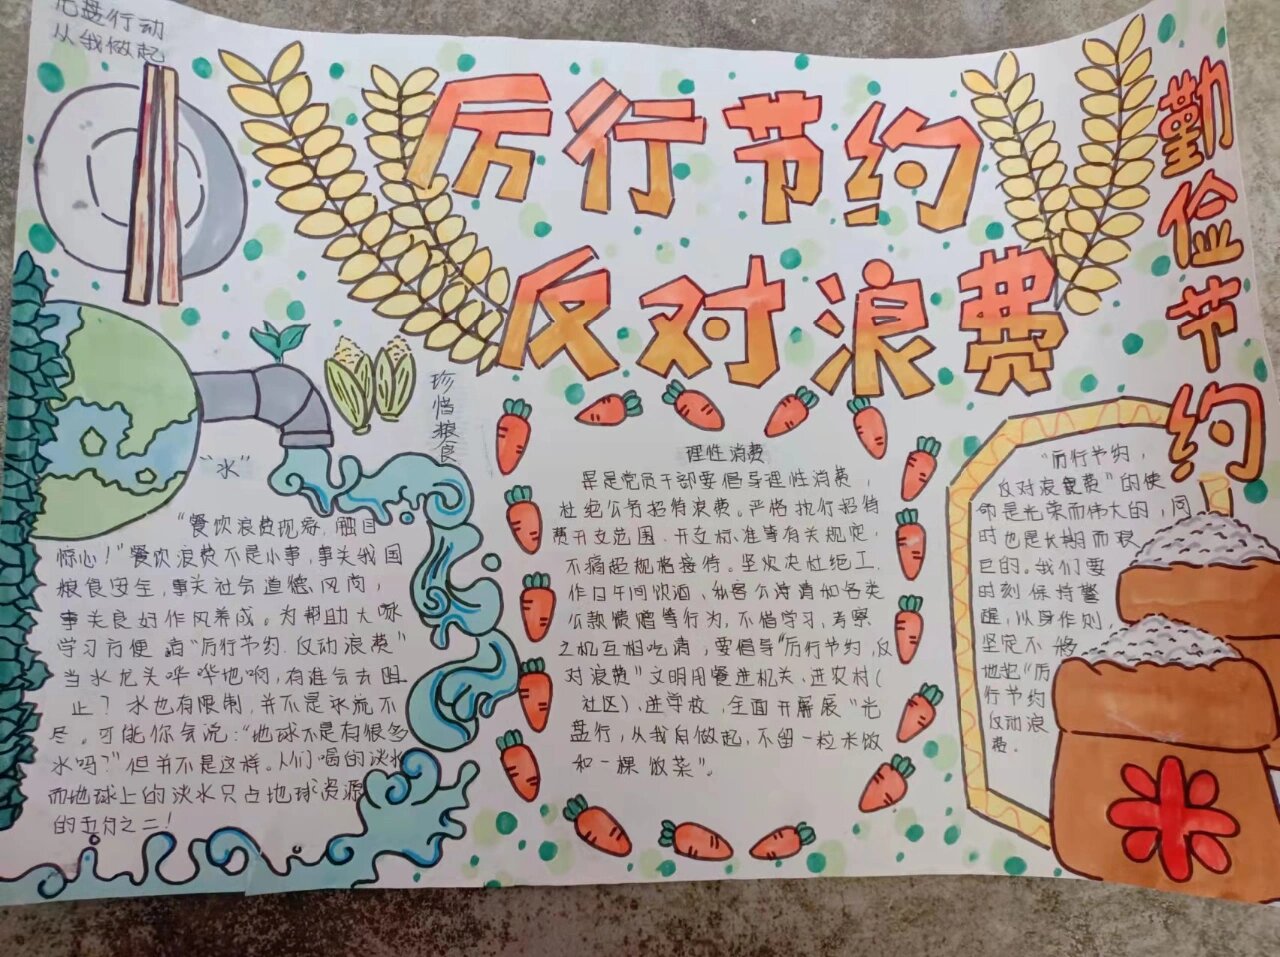 光盘行动
从我做起
厉行节约
反对浪费
勤俭节约
珍惜粮食
"水"
"餐饮浪费现象,触目
惊心!"餐饮浪费不是小事,事关我国
粮食安全,事关社会道德风尚,
事关良好作风养成。为帮助大家
学习方便
"厉行节约.反动浪费"
当水龙头哗哗地啊,有谁会去阻
止?水也有限制,并不是永流不
尽。可能你会说:"地球不是有很多
水吗?"但并不是这样。人们喝的淡水
而地球上的淡水只占地球资源
的百分之二!
理性消费
是党员干部要倡导理性消费,
杜绝公务招待浪费。严格执行招待
费开支范围、开支标准等有关规定,
不搞超规格接待。坚决杜绝工
作日午间饮酒,私客公请如各类
公款馈赠等行为,不借学习,考察
之机互相吃请,要倡导"厉行节约,反
对浪费"文明用餐进机关、进农村(
社区)、进学校,全面开展"光
盘行,从我自做起,不留一粒米饭
和一棵饭菜"。
"厉行节约,
反对浪费"的使
命是光荣而伟大的,同
时也是长期而艰
巨的。我们要
时刻保持警
醒,从身作则,
坚定不移
地把"厉
行节约
反动浪
费。
米